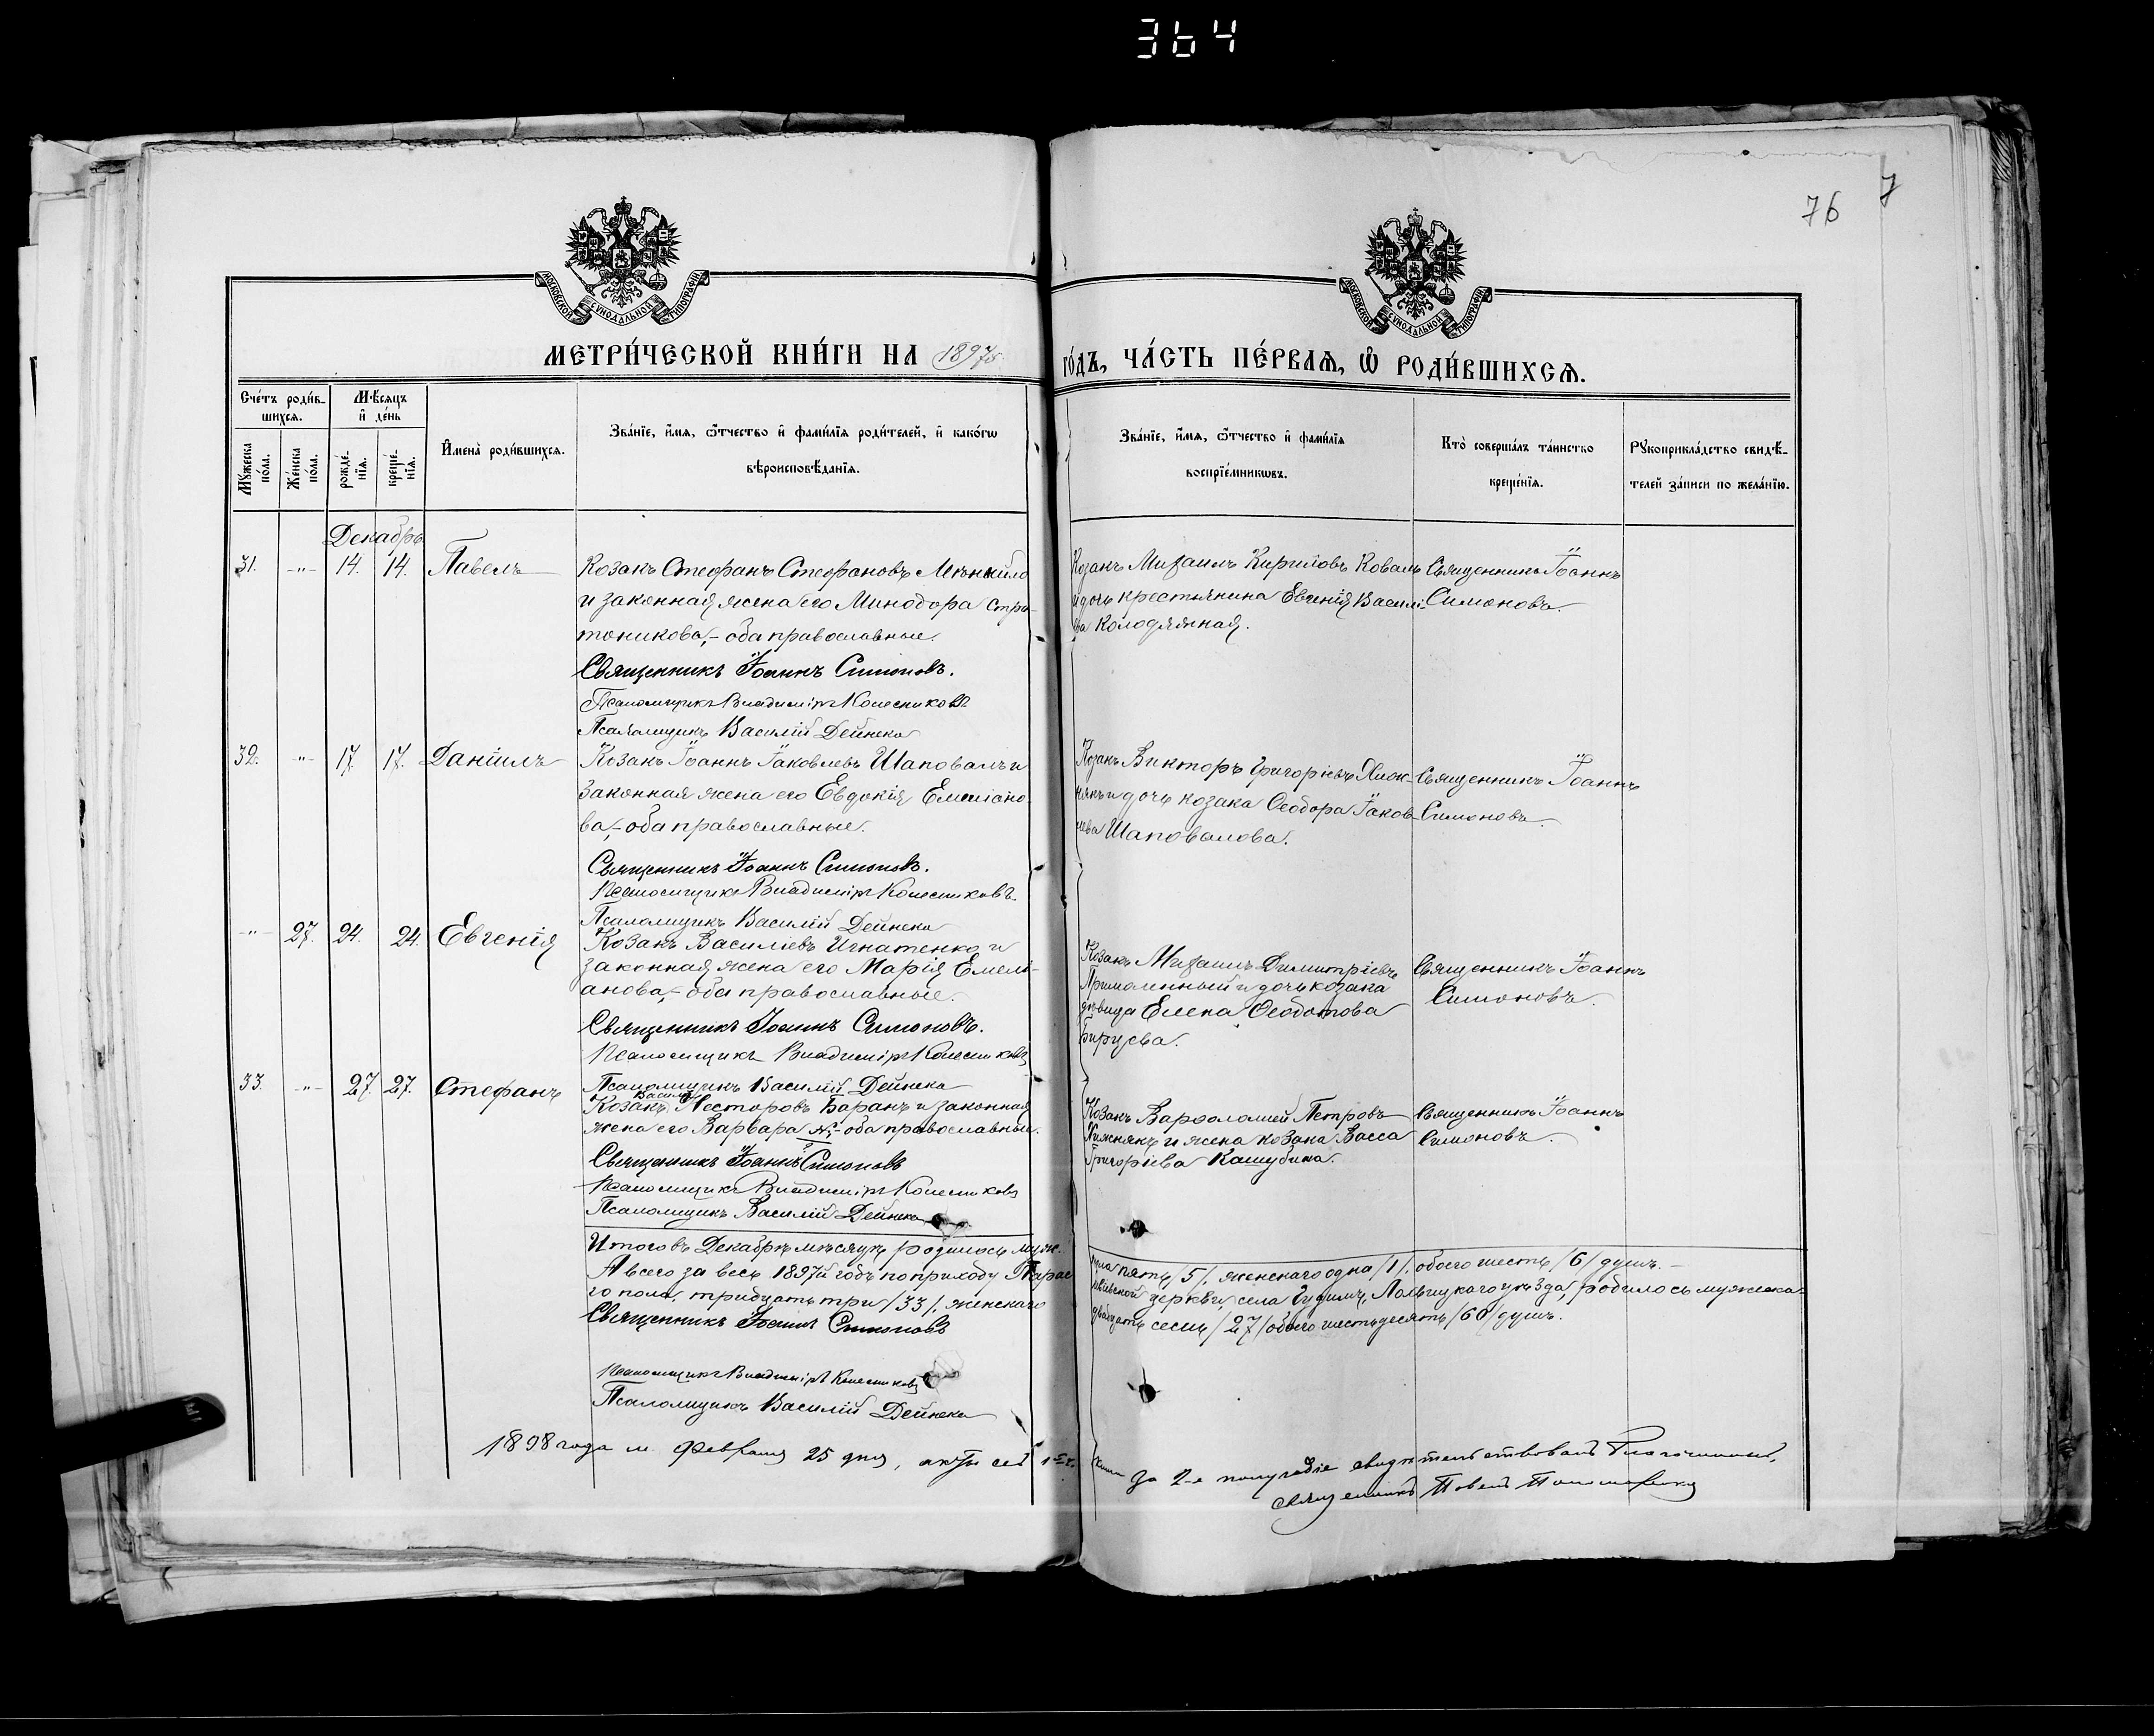 364
76
7
МОСКОВСКОЙ СУНОДАЛЬНОЙ ТИПОГРАФІИ
МОСКОВСКОЙ СУНОДАЛЬНОЙ ТИПОГРАФІИ
МЕТРИ́ЧЕСКОЙ КНИ́ГИ НА 1897
ГО́ДЪ, ЧА́СТЬ ПЕ́РВАЯ, Ѡ РОДИ́ВШИХСЯ.
Сче́тъ роди́в-
шихся.
Мѣ́сяцъ
и де́нь
Мꙋ́жеска
по́ла.
Же́нска
по́ла.
рожде́-
нїя.
креще́-
нїя.
И҆мена̀ роди́вшихся.
Зва́нїе, и҆́мя, ѻ҆́тчество и҆ фами́лїя роди́телей, и҆ како́гѡ
вѣроисповѣ́данїя.
Зва́нїе, и҆́мя, ѻ҆́тчество и҆ фами́лїя
воспрїе́мникѡвъ.
Кто̀ соверша́лъ та́инство
креще́нїя.
Рꙋкоприкла́дство свидѣ́-
телей за́писи по жела́нїю.
Декабрь
31. -"- 14. 14. Павелъ
Козакъ Стефанъ Стефановъ
и законная жена его Минодора Стра-
тоникова,- оба православные.
Священникъ Іоаннъ Симоновъ.
Псаломщикъ Владиміръ Колесниковъ
Псаломщикъ Василій Дейнека
Козакъ Михаилъ Кириловъ Коваль
и дочь крестьянина Евгенія Василі-
ва Колодяжная.
Священникъ Іоаннъ
Симоновъ.
32. -"- 17. 17. Даніилъ
Козакъ Іоаннъ Іаковлевъ Шаповалъ и
законная жена его Евдокія Емиліано-
ва,- оба православные.
Священникъ Іоаннъ Симоновъ.
Псаломщикъ Владиміръ Колесниковъ.
Псаломщикъ Василій Дейнека
Козакъ Викторъ Григоріевъ Хиж-
някъ и дочь козака Ѳеодора Іаков-
лева Шаповалова.
Священникъ Іоаннъ
Симоновъ
-"- 27. 24. 24. Евгенія
Козакъ Василіевъ Игнатенко и
законная жена его Марія Емелі-
анова,- оба православные.
Священникъ Іоаннъ Симоновъ.
Псаломщикъ Владиміръ Колесниковъ
Псаломщикъ Василій Дейнека
Козакъ Михаилъ Димитріевъ
и дочь козака
дѣвица Елена Ѳеодотова
Священникъ Іоаннъ
Симоновъ.
33. -"- 27. 27. Стефанъ
Василій
Козакъ Несторовъ Баранъ и законная
жена его Варвара N,- оба православные.
Священникъ Іоаннъ Симоновъ
Псаломщикъ Владиміръ Колесниковъ
Псаломщикъ Василій Дейнека
Козакъ Варѳоломей Петровъ
Хижнякъ и жена козака Васса
Григоріева Кашубина.
Священникъ Іоаннъ
Симоновъ.
Итого въ Декабрѣ мѣсяцѣ родилось муж.
пола пять /5/, женскаго одна /1/, обоего шесть /6/ душъ.-
А всего за весь 1897й годъ по приходу Парас-
кевіевской церкви, села Гудимъ, уѣзда, родилось мужска-
го пола тридцать три /33/, женскаго
двадцать семь /27/ обоего шестьдесятъ /60/ душъ.
Священникъ Іоаннъ Симоновъ
Псаломщикъ Владиміръ Колесниковъ
Псаломщикъ Василій Дейнека
1898 года м. Февраля 25 дня,
за 2-е полугодіе свидѣтельствовалъ Благочинный,
священникъ Павелъ Пономаренко